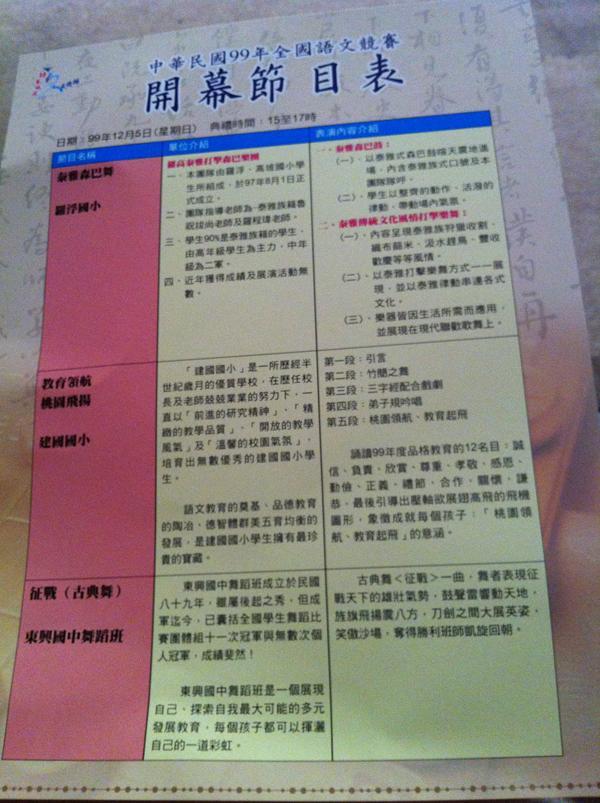 中華民國99年全國語文競賽
開幕節目表
日期：99年12月5日(星期日)　典禮時間：15至17時
節目名稱
單位介紹
表演內容介紹
泰雅森巴舞
羅浮國小
羅高泰雅打擊森巴樂團
一、本團隊由羅浮、高坡國小學
生所組成，於97年8月1日正
式成立。
二、團隊指導老師為-泰雅族籍魯
祝拔尚老師及羅程瑋老師。
三、學生90%是泰雅族籍的學生，
由高年級學生為主力，中年
級為二軍。
四、近年獲得成績及展演活動無
數。
一、泰雅森巴鼓：
(一)、以泰雅式森巴鼓喧天震地進
場，內含泰雅族式口號及本
團隊隊呼。
(二)、學生以整齊的動作、活潑的
律動、帶動場內氣氛。
二、泰雅傳統文化風情打擊樂舞：
(一)、內容呈現泰雅族狩獵收割、
織布篩米、汲水趕鳥、豐收
歡慶等等風情。
(二)、以泰雅打擊樂舞方式一一展
現，並以泰雅律動串連各式
文化。
(三)、樂器皆因生活所需而應用，
並展現在現代聯歡歌舞上。
教育領航
桃園飛揚
建國國小
「建國國小」是一所歷經半
世紀歲月的優質學校，在歷任校
長及老師兢兢業業的努力下，一
直以「前進的研究精神」、「精
緻的教學品質」、「開放的教學
風氣」及「溫馨的校園氣氛」，
培育出無數優秀的建國國小學
生。
語文教育的奠基、品德教育
的陶冶、德智體群美五育均衡的
發展，是建國國小學生擁有最珍
貴的寶藏。
第一段：引言
第二段：竹簡之舞
第三段：三字經配合戲劇
第四段：弟子規吟唱
第五段：桃園領航、教育起飛
誦讀99年度品格教育的12名目：誠
信、負責、欣賞、尊重、孝敬、感恩、
勤儉、正義、禮節、合作、關懷、謙
恭，最後引導出壓軸欲展翅高飛的飛機
圖形，象徵成就每個孩子：「桃園領
航、教育起飛」的意涵。
征戰（古典舞）
東興國中舞蹈班
東興國中舞蹈班成立於民國
八十九年，雖屬後起之秀，但成
軍迄今，已囊括全國學生舞蹈比
賽團體組十一次冠軍與無數次個
人冠軍，成績斐然！
東興國中舞蹈班是一個展現
自己、探索自我最大可能的多元
發展教育，每個孩子都可以揮灑
自己的一道彩虹。
古典舞＜征戰＞一曲，舞者表現征
戰天下的雄壯氣勢，鼓聲雷響動天地，
旌旗飛揚震八方，刀劍之間大展英姿，
笑傲沙場，奪得勝利班師凱旋回朝。